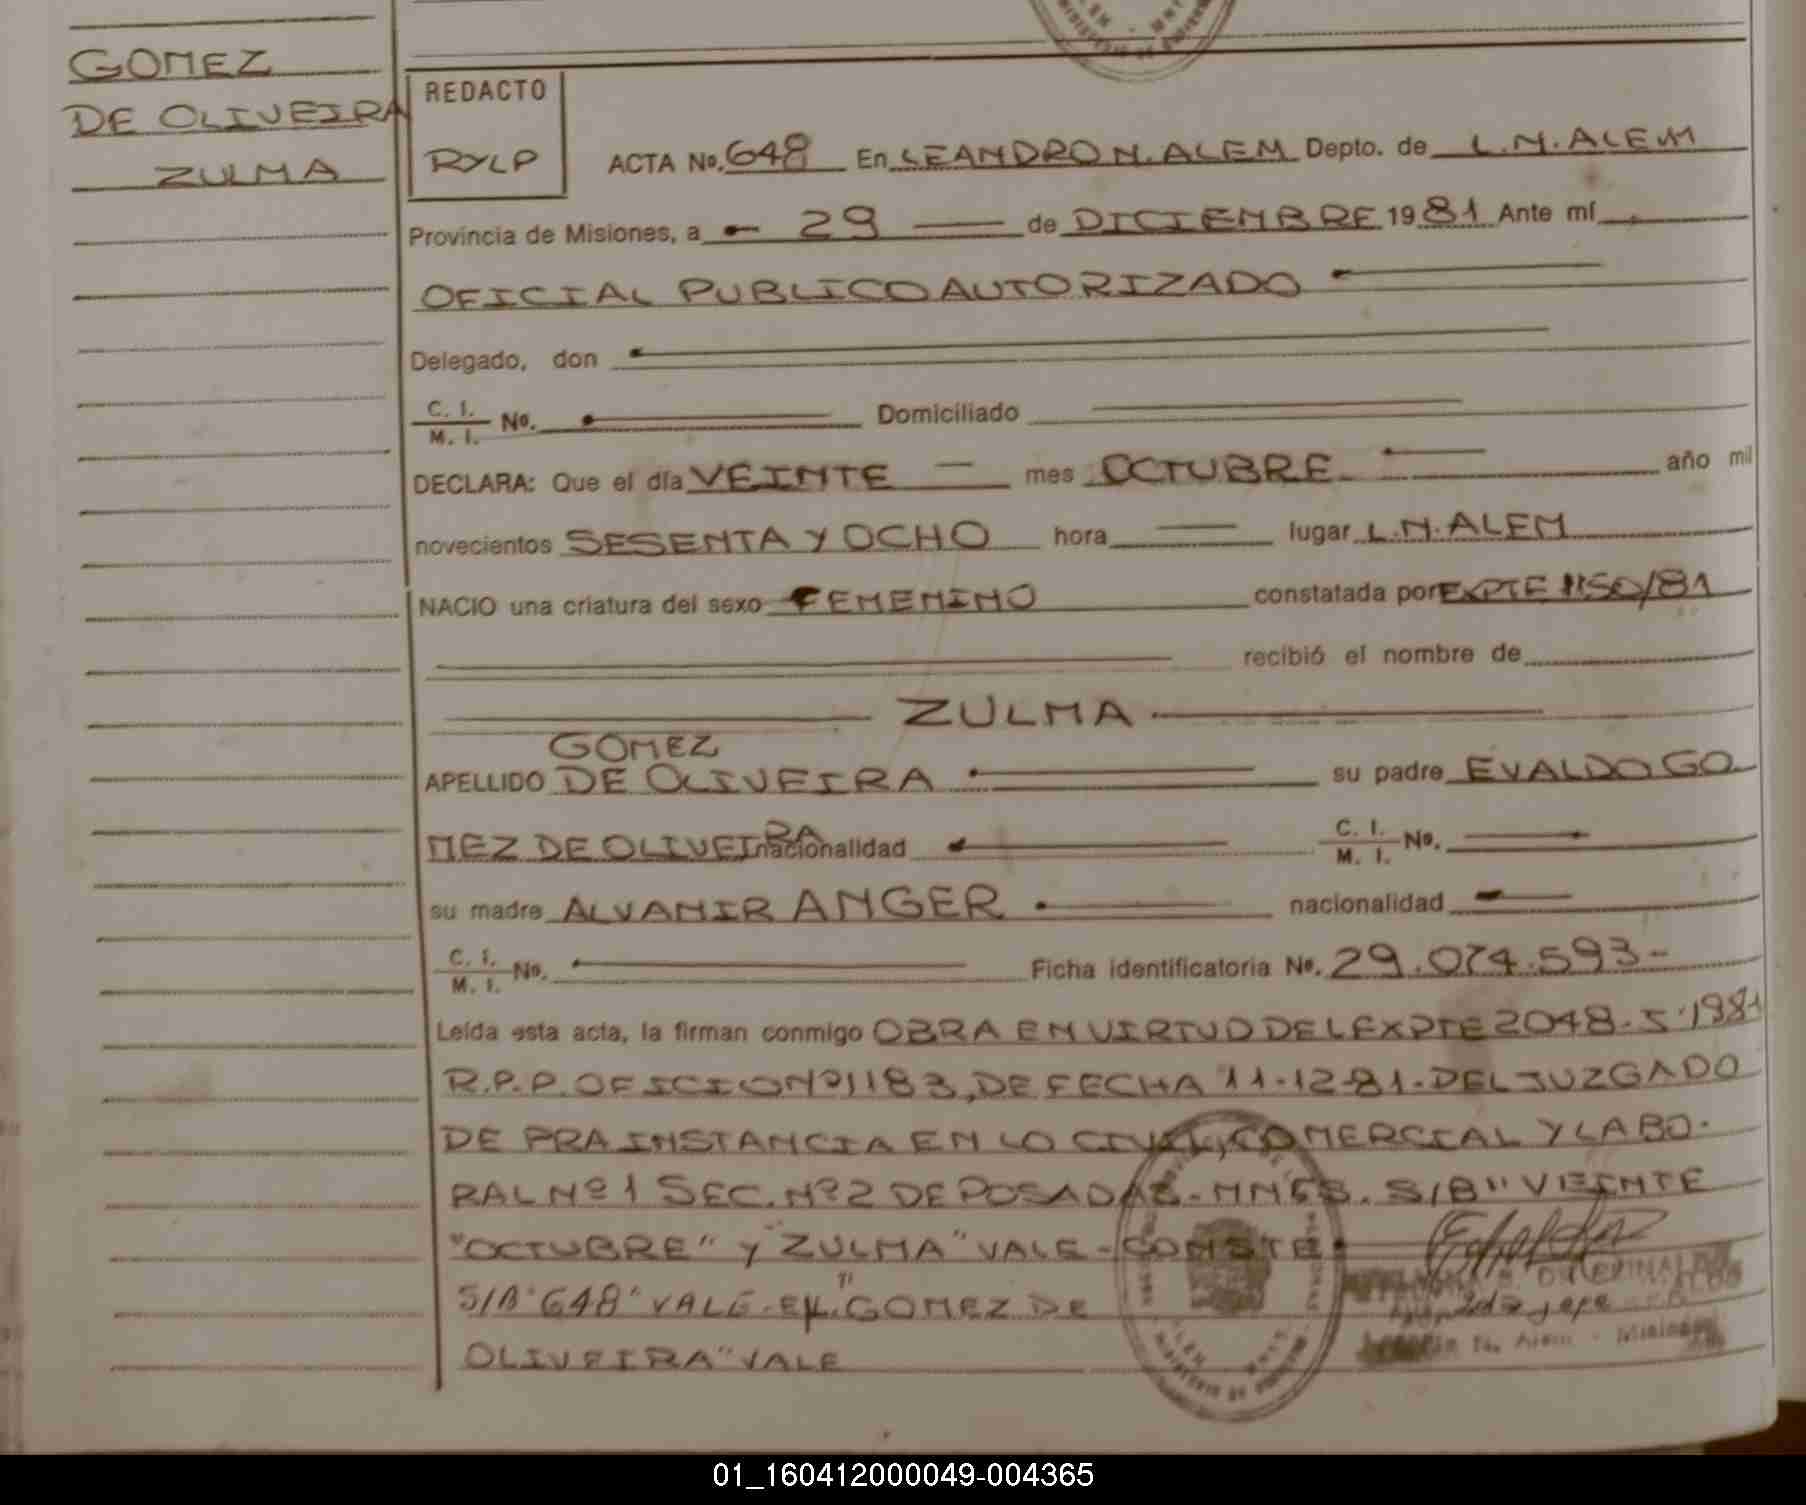 GOMEZ
DE OLIVEIRA
ZULMA
REDACTO
RYLP
ACTA No. 648 En LEANDRO N. ALEM Depto. de L.N. ALEM
Provincia de Misiones, a 29 de DICIEMBRE 1981 Ante mí
OFICIAL PUBLICO AUTORIZADO
Delegado, don
C. I.
M. I. No. Domiciliado
DECLARA: Que el día VEINTE mes OCTUBRE año mil
novecientos SESENTA Y OCHO hora lugar L.N. ALEM
NACIO una criatura del sexo FEMENINO constatada por EXPTE 1150/81
recibió el nombre de
ZULMA
GOMEZ
APELLIDO DE OLIVEIRA su padre EVALDO GO
MEZ DE OLIVEIRA nacionalidad C. I.
M. I. No.
su madre ALVANIR ANGER nacionalidad
C. I.
M. I. No. Ficha identificatoria No. 29.074.593-
Leída esta acta, la firman conmigo OBRA EN VIRTUD DEL EXPTE 2048-5-1981
R.P.P. OFICIO Nº 1183, DE FECHA 11-12-81. DEL JUZGADO
DE PRA INSTANCIA EN LO CIVIL, COMERCIAL Y LABO-
RAL Nº 1 SEC. Nº 2 DE POSADAS - MNES. S/B "VEINTE
"OCTUBRE" Y "ZULMA" VALE - CONSTE
S/B "648" VALE - E/L "GOMEZ DE
OLIVEIRA" VALE
01_160412000049-004365